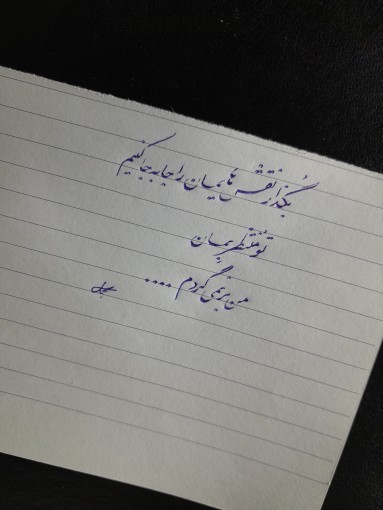 بگذار نقش هایمان را جابه جا کنیم
تو منتظر بمان
من برنمی گردم ....